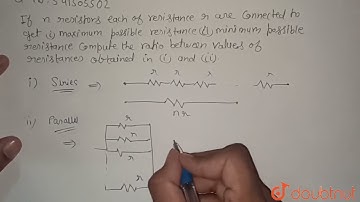 If n resistors each of resistance r are connected to
get (i) maximum possible resistance (ii) minimum possible
resistance Compute the ratio between values of
resistances obtained in (i) and (ii)
i) Series ⇒ r r r r
nr
ii) Parallel ⇒ r
r
r
r
doubtnut